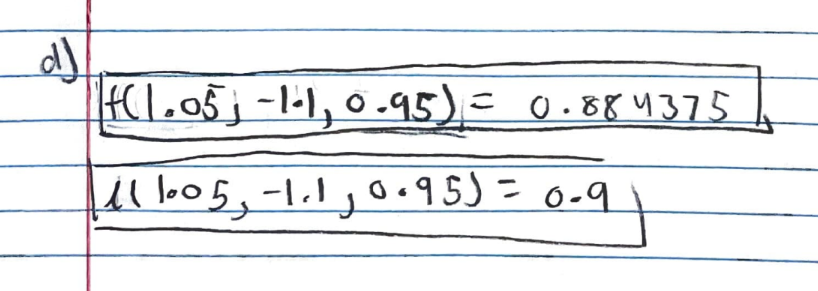 d)
f(1.05, -1.1, 0.95) = 0.884375
L(1.05, -1.1, 0.95) = 0.9